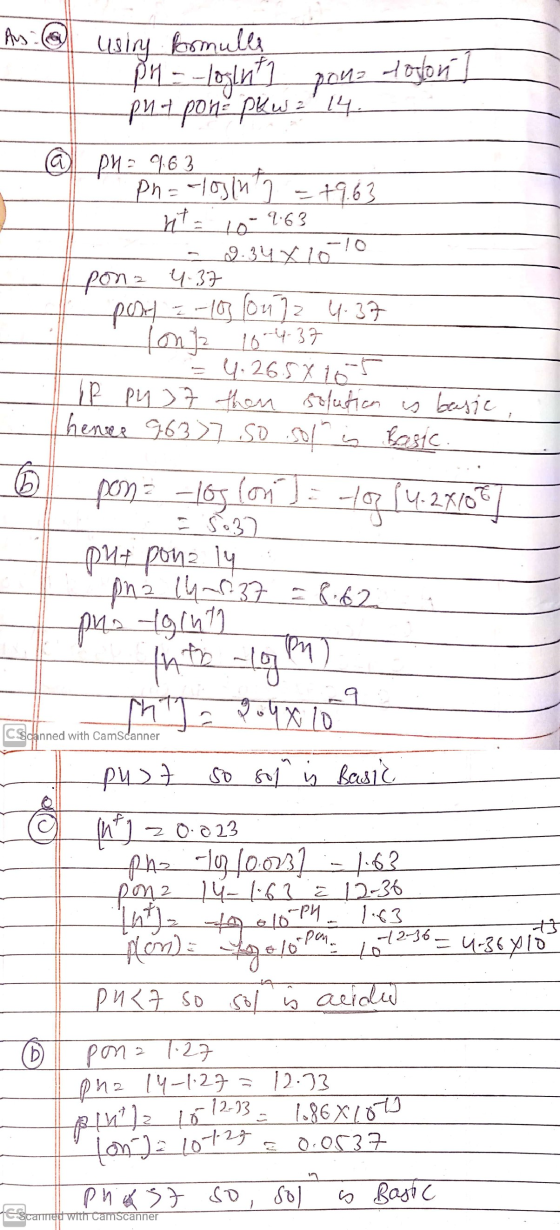 Ans: (a) using formulla
pH = -log[H⁺] pOH = -log[OH⁻]
pH + pOH = pKw = 14.
(a) pH = 9.63
pH = -log[H⁺] = +9.63
H⁺ = 10^-9.63
= 2.34 × 10^-10
pOH = 4.37
pOH = -log [OH⁻] = 4.37
[OH] = 10^-4.37
= 4.265 × 10^-5
If pH > 7 then solution is basic,
hence 9.63 > 7 so solⁿ is Basic.
(b) pOH = -log [OH⁻] = -log [4.2×10^-6]
= 5.37
pH + pOH = 14
pH = 14 - 5.37 = 8.62
pH = -log[H⁺]
[H⁺] = -log^(pH)
[H⁺] = 2.4 × 10^-9
CS Scanned with CamScanner
pH > 7 so solⁿ is Basic
(c) [H⁺] = 0.023
pH = -log [0.023] = 1.63
pOH = 14 - 1.63 = 12.36
[H⁺] = 10^-pH = 1.63
[OH] = 10^-pOH = 10^-12.36 = 4.36 × 10^-13
pH < 7 so solⁿ is acidic
(D) pOH = 1.27
pH = 14 - 1.27 = 12.73
[H⁺] = 10^-12.73 = 1.86 × 10^-13
[OH⁻] = 10^-1.27 = 0.0537
pH > 7 so, solⁿ is Basic
CS Scanned with CamScanner